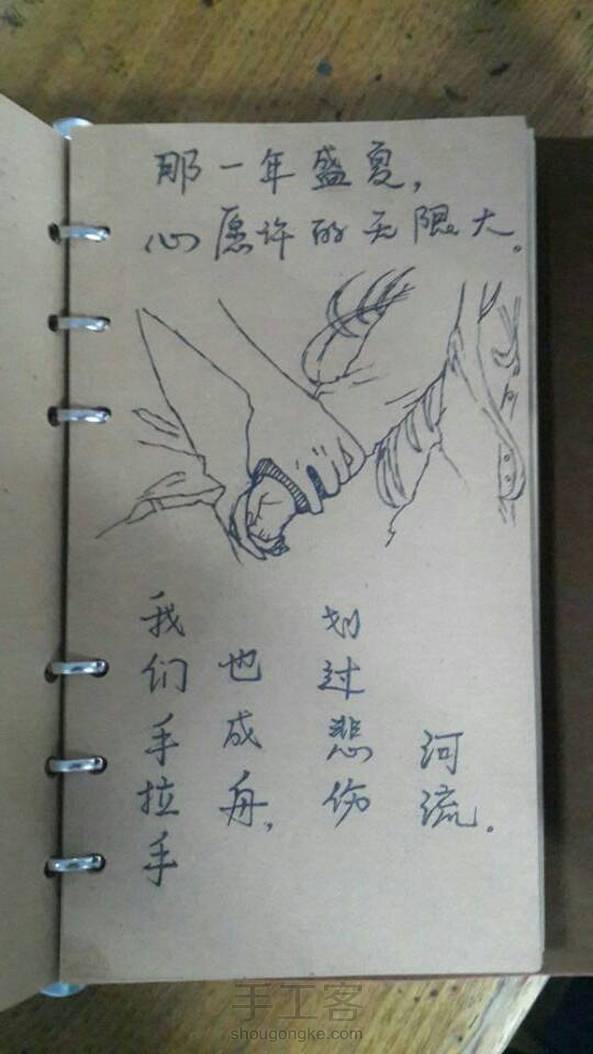 那一年盛夏,
心愿许的无限大。
我们手拉手
也成舟,
划过悲伤
河流。
手工客
shougongke.com